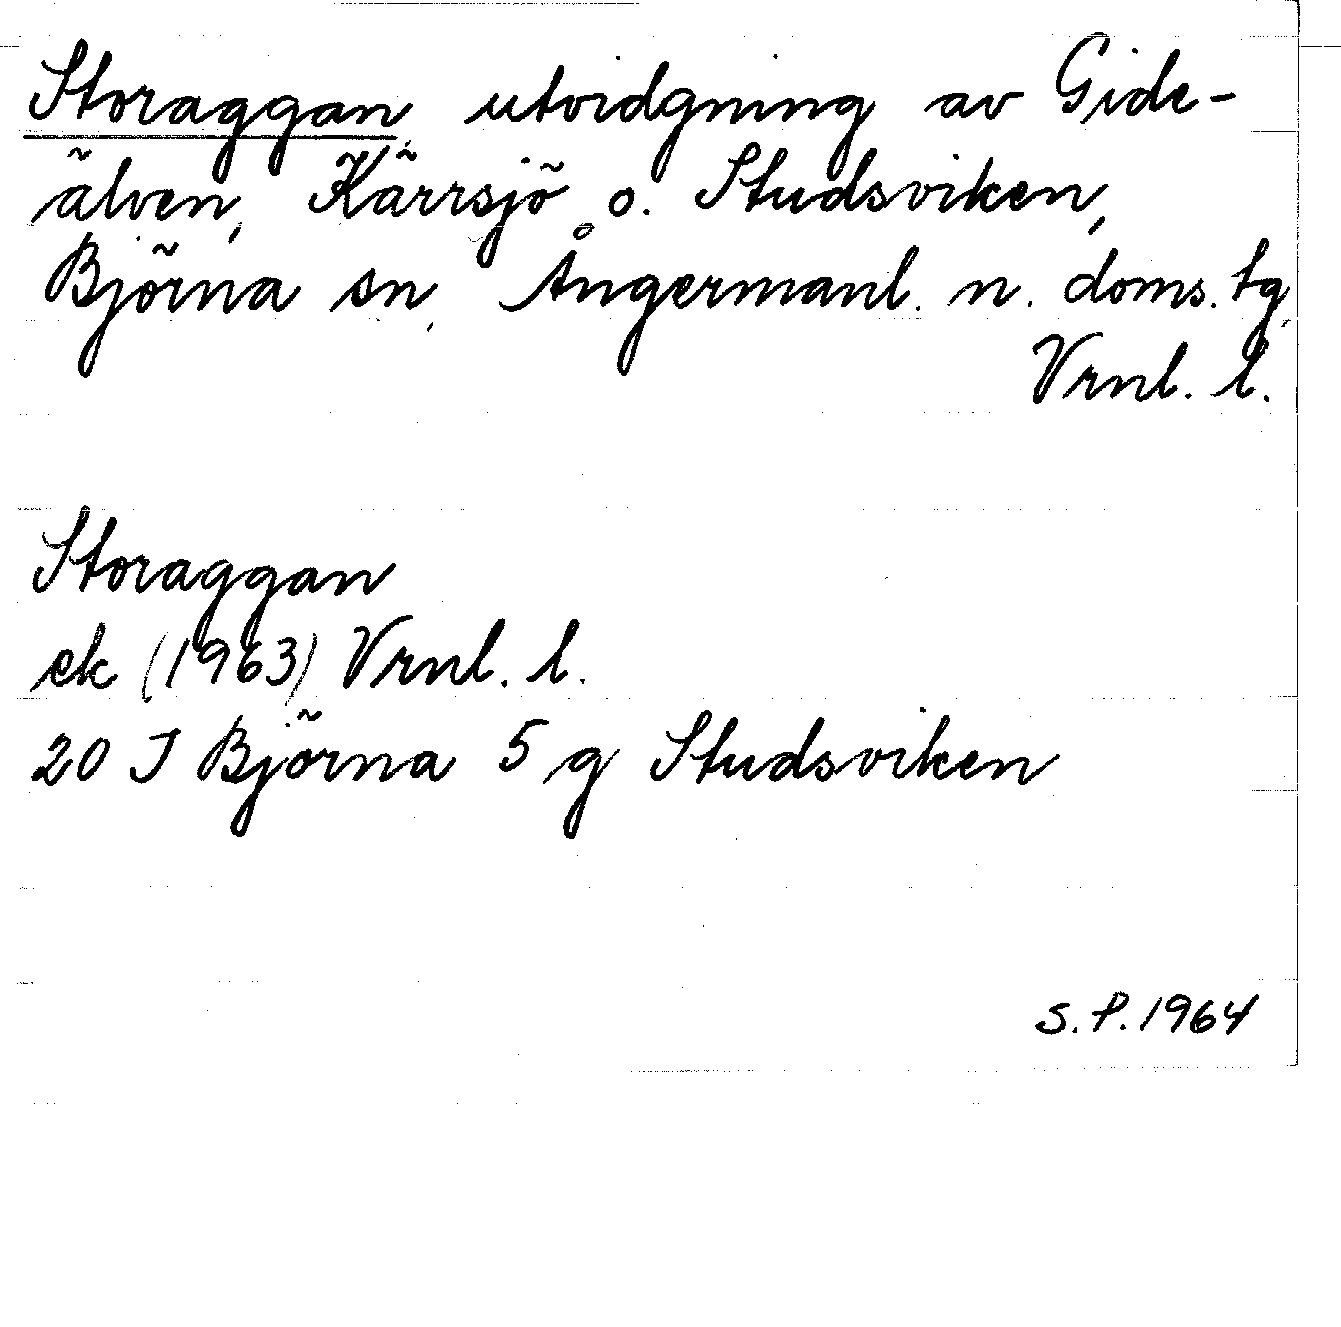 Storaggan, utvidgning av Gide-
älven, Kärrsjö o. Studsviken,
Björna sn, Ångermanl. n. doms. tg,
Vrnl. l.
Storaggan
ek (1963) Vrnl. l.
20 J Björna 5 g Studsviken
S.P. 1964